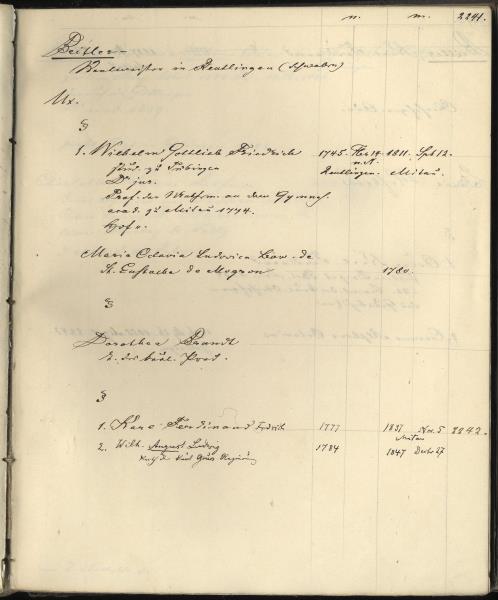 n. m. 2241.
Beitler
in Reutlingen (Schwaben)
Ux.
§
1. Wilhelm Gottlieb Friedrich 1745. 14 1811. Sept 12.
Stud. zu Tübingen Reutlingen. Mitau.
Dr jur.
Prof. der Mathem. an dem Gymnas.
acad. zu Mitau 1774.
Hofr.
Maria Octavia Ludovica Bar. de
St. Eustache de 1780.
§
Dorothea Brandt
§
1. Karl Ferdinand Friedrich 1777 1837 Nov. 5 2242.
Mitau
2. Wilh. August Ludwig 1784 1847 Decbr 27